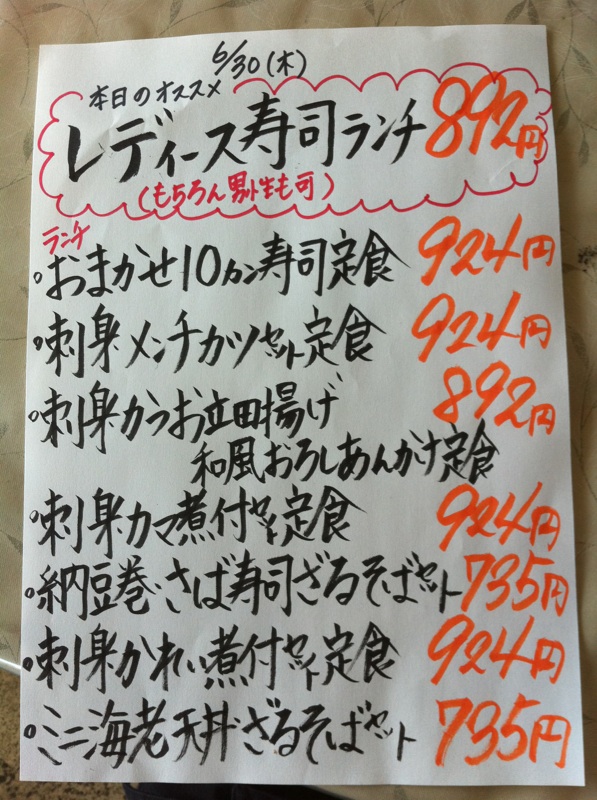 6/30(木)
本日のオススメ
レディース寿司ランチ 892円
(もちろん男性も可)
ランチ
。おまかせ10カン寿司定食 924円
。刺身メンチカツセット定食 924円
。刺身かつお立田揚げ 892円
和風おろしあんかけ定食
。刺身カマ煮付セット定食 924円
。納豆巻・さば寿司ざるそばセット 735円
。刺身かれい煮付セット定食 924円
。ミニ海老天丼ざるそばセット 735円